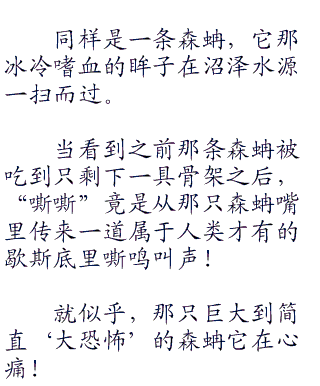 同样是一条森蚺，它那
冰冷嗜血的眸子在沼泽水源
一扫而过。
当看到之前那条森蚺被
吃到只剩下一具骨架之后，
“嘶嘶”竟是从那只森蚺嘴
里传来一道属于人类才有的
歇斯底里嘶鸣叫声！
就似乎，那只巨大到简
直‘大恐怖’的森蚺它在心
痛！